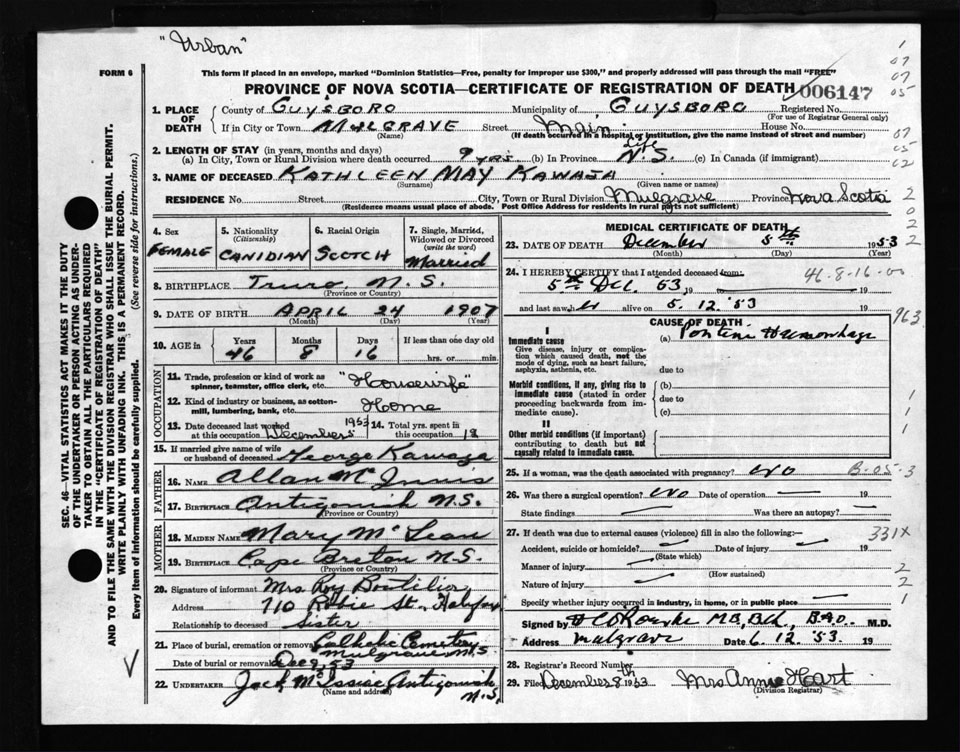 "Urban"
FORM 6
This form if placed in an envelope, marked "Dominion Statistics—Free, penalty for improper use $300," and properly addressed will pass through the mail "FREE"
PROVINCE OF NOVA SCOTIA—CERTIFICATE OF REGISTRATION OF DEATH 006147
1. PLACE OF DEATH
County of GUYSBORO Municipality of GUYSBORO Registered No.
(For use of Registrar General only)
If in City or Town MULGRAVE Street Main House No.
(Name) (If death occurred in a hospital or institution, give the name instead of street and number)
2. LENGTH OF STAY (in years, months and days)
(a) In City, Town or Rural Division where death occurred 9 yrs (b) In Province Life N.S. (c) In Canada (if immigrant)
3. NAME OF DECEASED KATHLEEN MAY KAWAJA
(Surname) (Given name or names)
RESIDENCE No. Street City, Town or Rural Division Mulgrave Province Nova Scotia
(Residence means usual place of abode. Post Office Address for residents in rural parts not sufficient)
4. Sex
FEMALE
5. Nationality
(Citizenship)
CANIDIAN
6. Racial Origin
SCOTCH
7. Single, Married, Widowed or Divorced
(write the word)
Married
8. BIRTHPLACE Truro, N.S.
(Province or Country)
9. DATE OF BIRTH APRIL 24 1907
(Month) (Day) (Year)
10. AGE in
Years Months Days If less than one day old
46 8 16 hrs. or min.
OCCUPATION
11. Trade, profession or kind of work as spinner, teamster, office clerk, etc. "Housewife"
12. Kind of industry or business, as cotton-mill, lumbering, bank, etc. Home
13. Date deceased last worked at this occupation December 1953
14. Total yrs. spent in this occupation 18
15. If married give name of wife or husband of deceased George Kawaja
FATHER
16. NAME Allan McInnis
17. BIRTHPLACE Antigonish N.S.
(Province or Country)
MOTHER
18. MAIDEN NAME Mary McLean
19. BIRTHPLACE Cape Breton N.S.
(Province or Country)
20. Signature of informant Mrs Roy Boutilier
Address 710 Robie St., Halifax
Relationship to deceased Sister
21. Place of burial, cremation or removal Catholic Cemetery Mulgrave N.S.
Date of burial or removal Dec 9, 53
22. UNDERTAKER Jack McIssac Antigonish N.S.
(Name and address)
MEDICAL CERTIFICATE OF DEATH
23. DATE OF DEATH December 5th 1953
(Month) (Day) (Year)
24. I HEREBY CERTIFY that I attended deceased from: 46-8-16-00
5th Dec 53 19 19
and last saw her alive on 5. 12. '53 19
CAUSE OF DEATH
I
Immediate cause
Give disease, injury or complication which caused death, not the mode of dying, such as heart failure, asphyxia, asthenia, etc.
(a) Pontine Haemorrhage
due to
Morbid conditions, if any, giving rise to immediate cause (stated in order proceeding backwards from immediate cause).
(b)
due to
(c)
II
Other morbid conditions (if important) contributing to death but not causally related to immediate cause.
25. If a woman, was the death associated with pregnancy? No B-05-3
26. Was there a surgical operation? No Date of operation 19
State findings Was there an autopsy?
27. If death was due to external causes (violence) fill in also the following:— 331X
Accident, suicide or homicide? Date of injury 19
(State which)
Manner of injury
(How sustained)
Nature of injury
Specify whether injury occurred in industry, in home, or in public place
Signed by H C O'Rourke MB, BCh, BAO. M.D.
Address Mulgrave Date 6. 12. '53 19
28. Registrar's Record Number
29. Filed December 8th 1953 Mrs Annie Hart
(Division Registrar)
SEC. 46—VITAL STATISTICS ACT MAKES IT THE DUTY
OF THE UNDERTAKER OR PERSON ACTING AS UNDER-
TAKER TO OBTAIN ALL THE PARTICULARS REQUIRED
IN THE "CERTIFICATE OF REGISTRATION OF DEATH"
AND TO FILE THE SAME WITH THE DIVISION REGISTRAR WHO SHALL ISSUE THE BURIAL PERMIT.
WRITE PLAINLY WITH UNFADING INK. THIS IS A PERMANENT RECORD.
Every item of information should be carefully supplied. (See reverse side for instructions.)
1
07
07
05
07
05
02
2
0
2
2
963
1
1
1
2
2
1